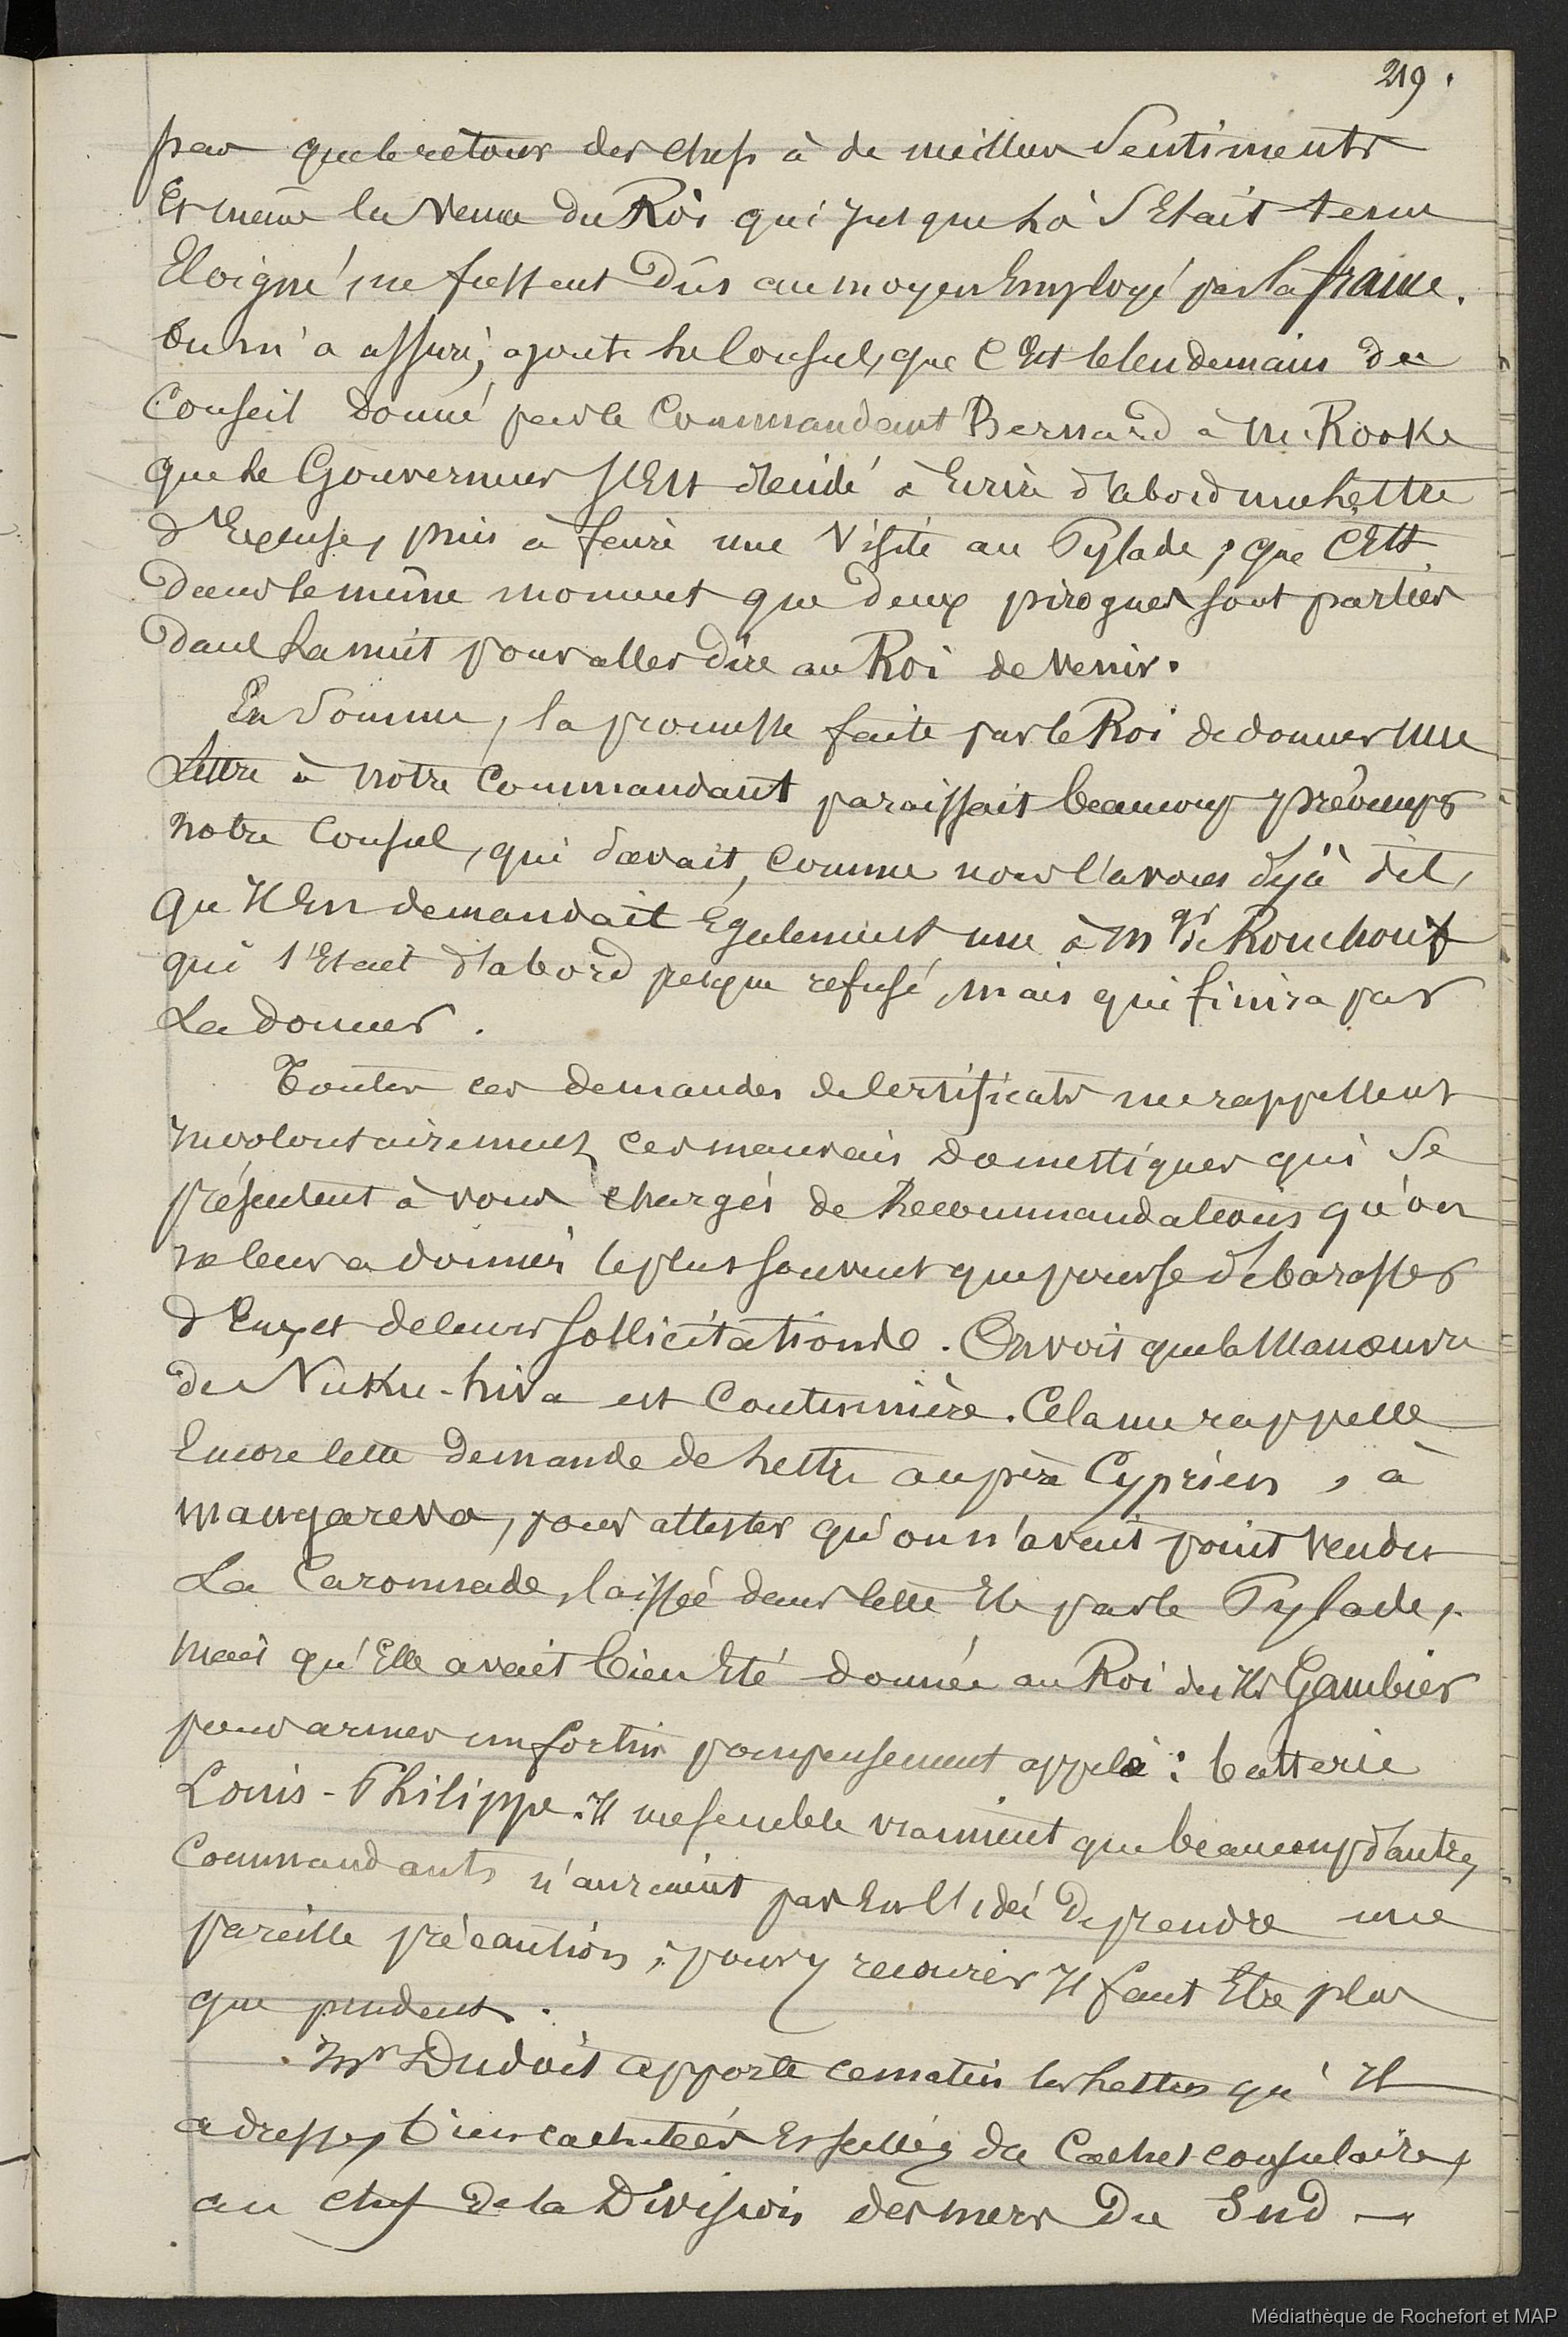 219.
pas que le retour des chefs à de meilleurs Sentiments
Et même la venue du Roi qui jusque là s'Etait tenu
Eloigné, ne fussent dûs au moyen Employé par la france.
On m'a assuré, ajoute le Consul, que C'Est le lendemain du
Conseil donné par le Commandant Bernard à Mr. Rooke
que le Gouverneur s'Est décidé à Ecrire d'abord une lettre
d'Excuse, puis à faire une Visite au Pylade, que C'Est
dans le même moment que deux pirogues sont parties
dans la nuit pour aller dire au Roi de venir.
En Somme, la promesse faite par le Roi de donner une
Lettre à notre Commandant paraissait beaucoup
notre Consul, qui savait, Comme nous l'avons déjà dit,
qu'Il En demandait Egalement une à Mgr de Rouchouse
qui s'Etait d'abord presque refusé, mais qui finira par
La donner.
Toutes ces demandes de Certificats me rappellent
Involontairement ces mauvais Domestiques qui Se
présentent à vous chargés de Recommandations qu'on
ne leur a données le plus souvent que pour se débarasser
d'Eux et de leurs sollicitations. On voit que la Manœuvre
de Nuku-hiva est Coutumière. Cela me rappelle
Encore Cette Demande de Lettre au père Cyprien, à
mangareva, pour attester qu'on n'avait point vendu
La Caronnade, laissée dans Cette Ile par le Pylade,
mais qu'Elle avait bien Eté donnée au Roi des Iles Gambier
pour armer un fortin pompeusement appelé : batterie
Louis-Philippe. Il me semble vraiment que beaucoup d'autres
Commandants n'auraient pas Eu l'Idée De prendre une
pareille précaution ; pour y recourir Il faut Etre plus
que prudent.
Mr Dudoit apporte ce matin les Lettres qu'Il
adresse, bien cachetées Et scellées du Cachet consulaire,
au chef De la Division des mers Du Sud —
Médiathèque de Rochefort et MAP